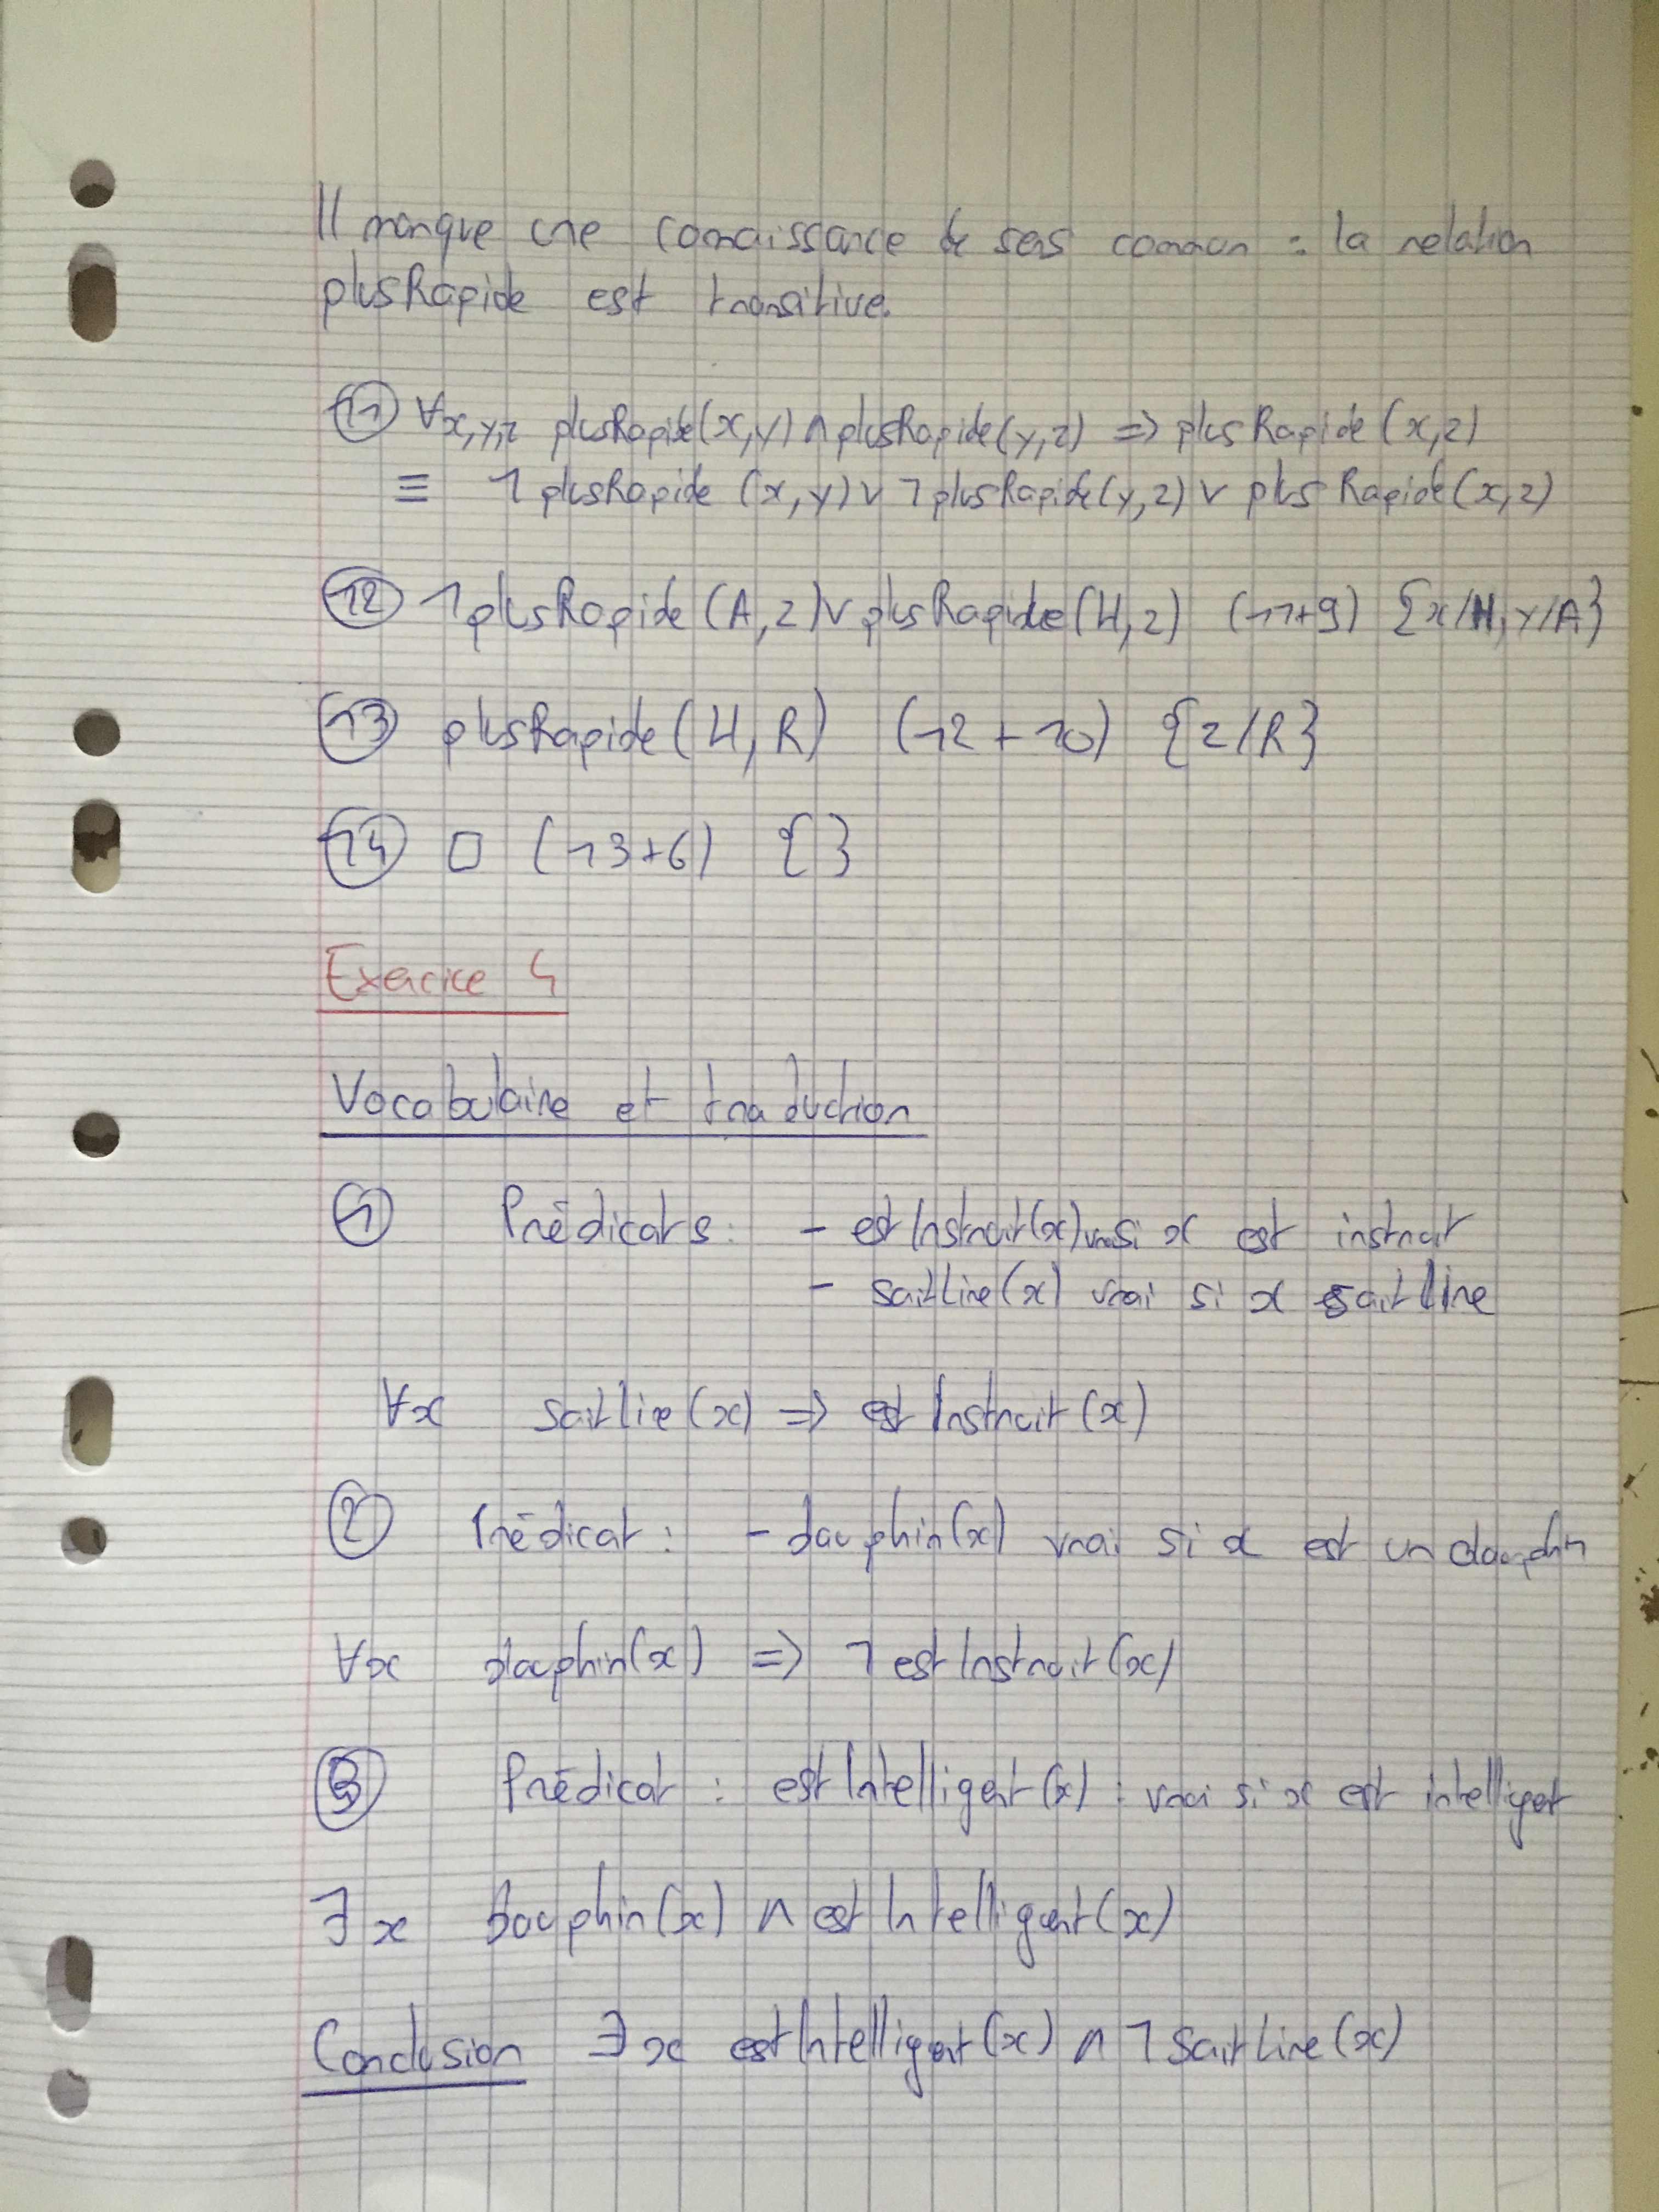 Il manque une connaissance de sens commun : la relation
plusRapide est transitive.
⑪ ∀x,y,z plusRapide(x,y) ∧ plusRapide(y,z) => plusRapide(x,z)
≡ ¬plusRapide(x,y) ∨ ¬plusRapide(y,z) ∨ plusRapide(x,z)
⑫ ¬plusRapide(A,z) ∨ plusRapide(H,z) (11+9) {x/H, y/A}
⑬ plusRapide(H,R) (12+10) {z/R}
⑭ □ (13+6) {}
Exercice 4
Vocabulaire et traduction
① Prédicats : - estInstruit(x) vrai si x est instruit
- saitLire(x) vrai si x sait lire
∀x saitlire(x) => estInstruit(x)
② Prédicat : - dauphin(x) vrai si x est un dauphin
∀x dauphin(x) => ¬estInstruit(x)
③ Prédicat : estIntelligent(x) : vrai si x est intelligent
∃x Dauphin(x) ∧ estIntelligent(x)
Conclusion ∃x estIntelligent(x) ∧ ¬SaitLire(x)